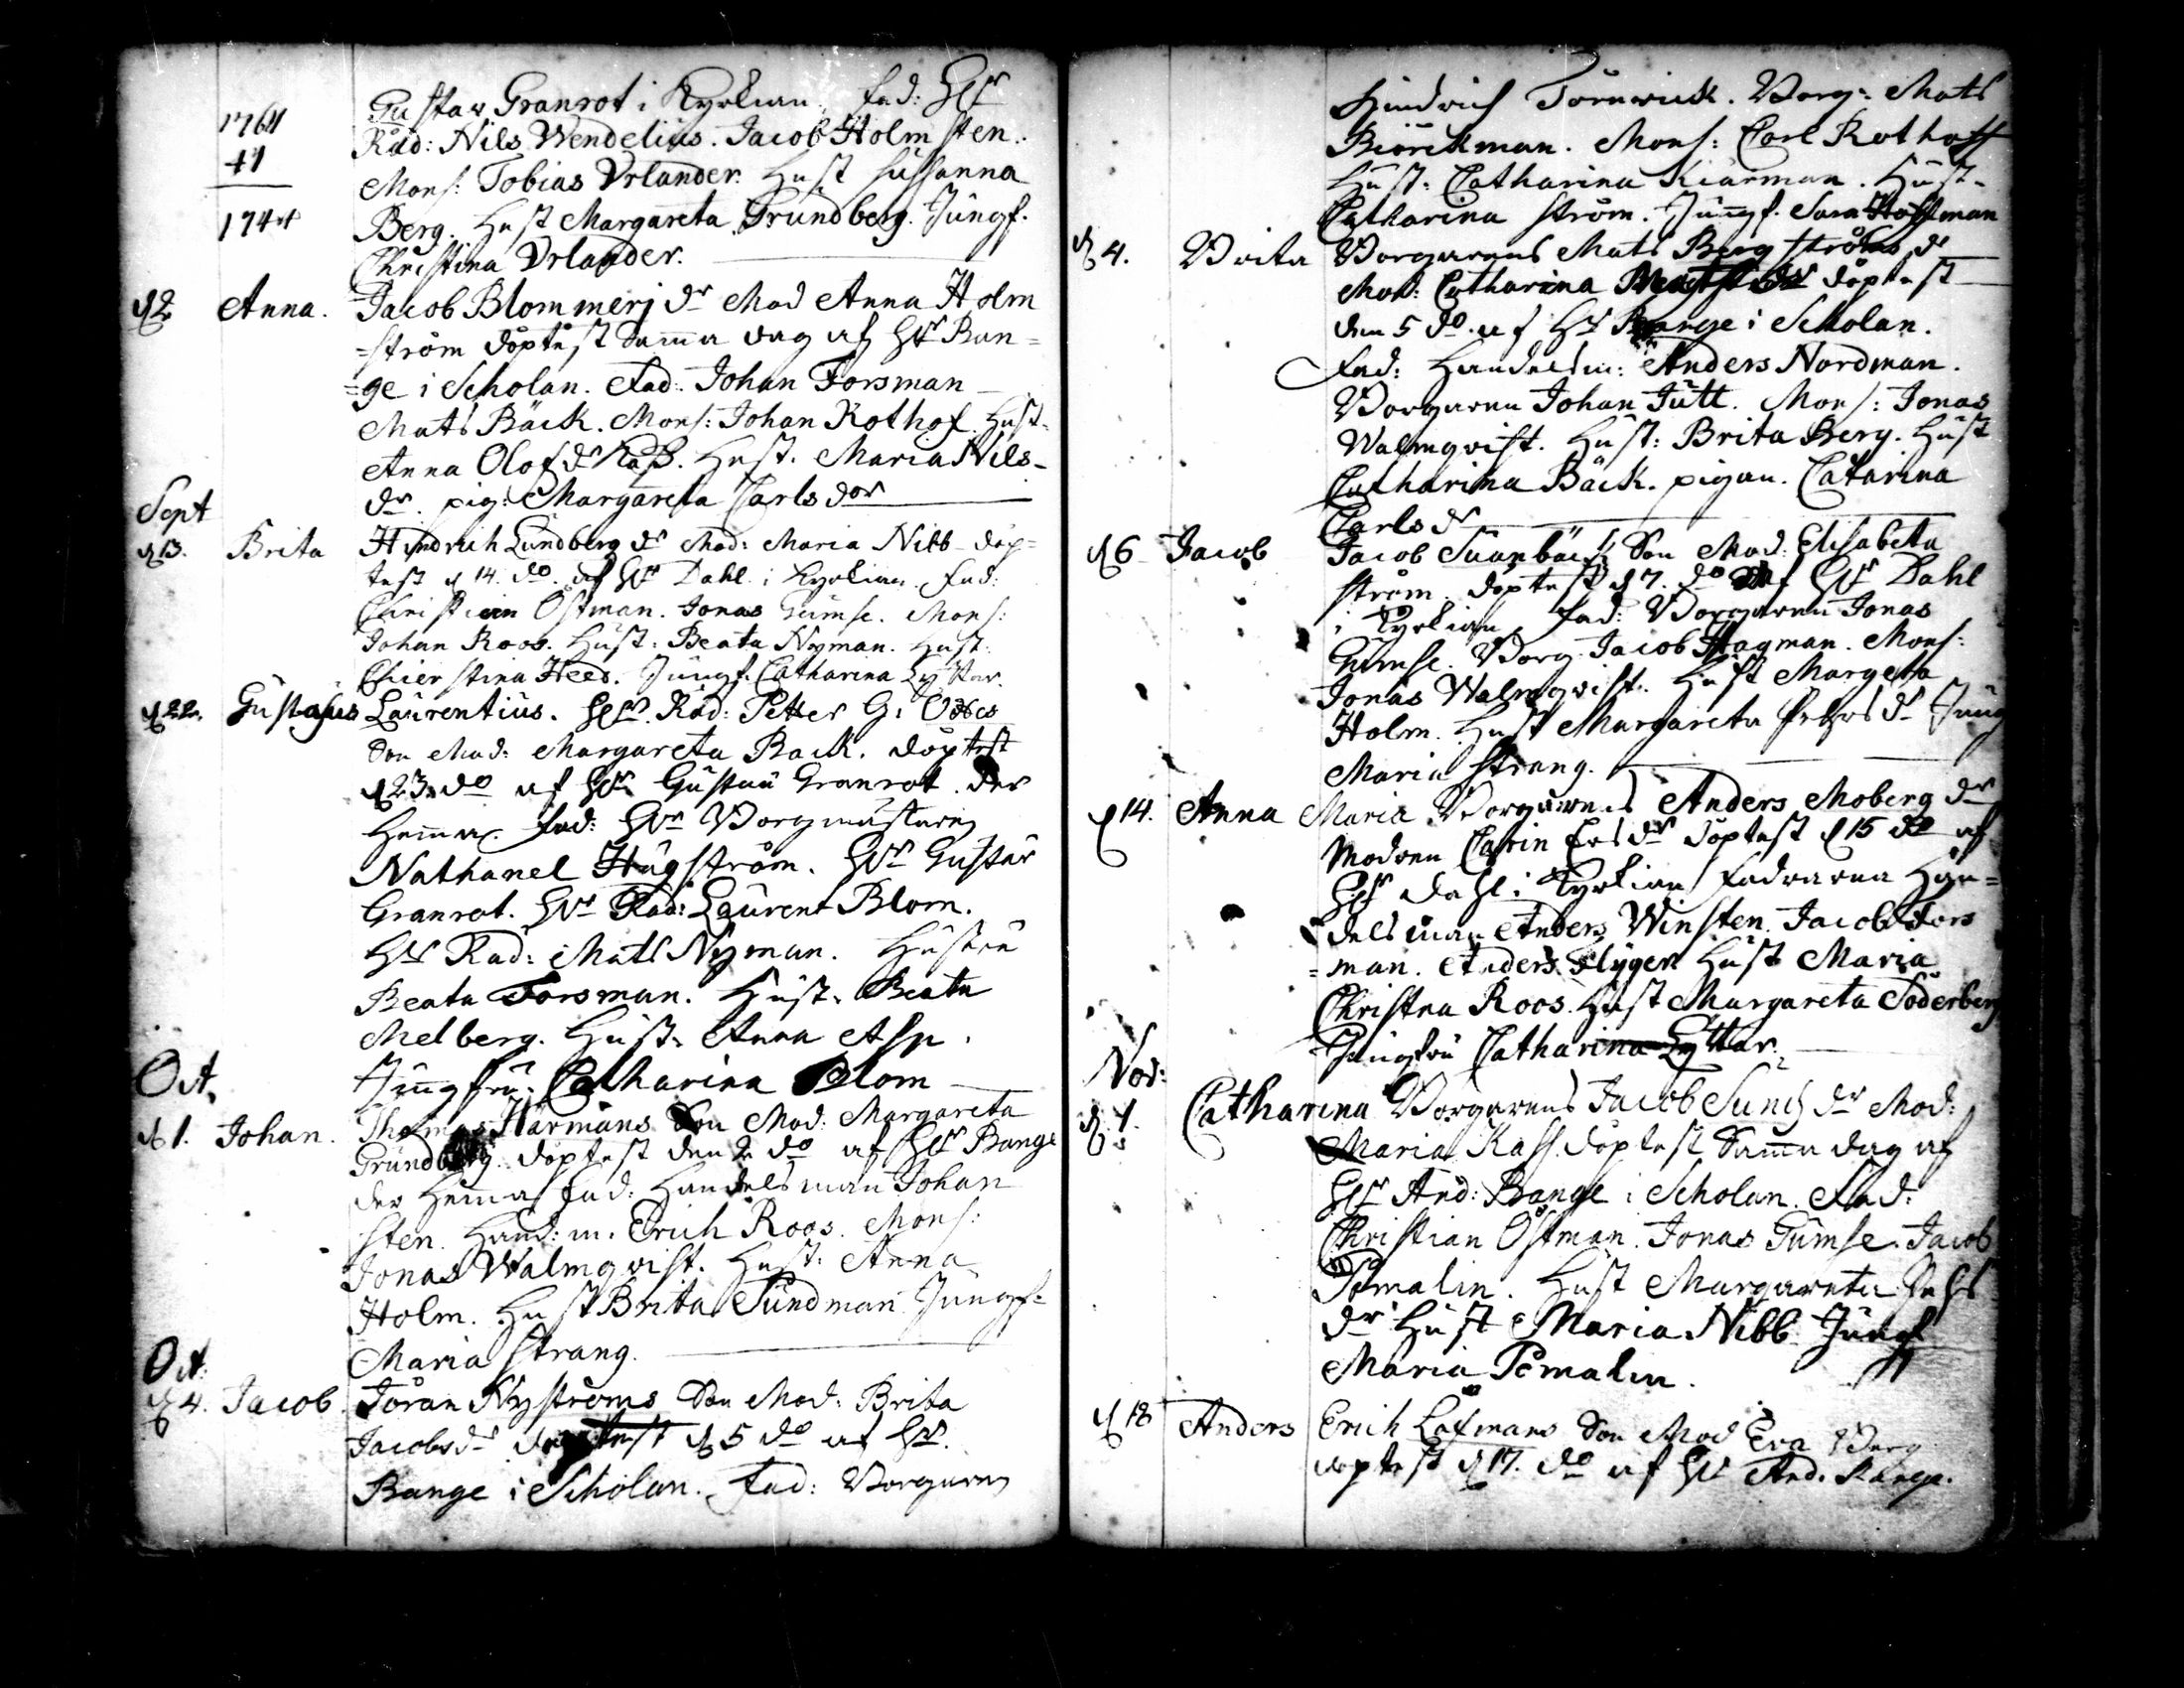 1764
41
1744
Gustav Granrot i Kyrkian. fad: HEr
Råd: Nils Wendelius. Jacob Holmsten.
Mons: Tobias Urlander. Hust Sussanna
Berg. Hust Margareta Grundberg. Jungf.
Christina Urlander.
d 2 Anna. Jacob Blommerj dr Mod Anna Holm
=ström döptest Samma dag af HEr Ban=
=ge i Scholan. Fad: Johan Forsman
Mats Bäck. Mons: Johan Rothof. Hust.
Anna Olofdr Kass. Hust. Maria Nils-
dr. pig: Margareta Carlsdor
Sept
d 13. Brita Hindrich Lundberg dr Mod: Maria Nibb döp=
test d 14. do. af HEr Dahl i Kyrkian. Fad:
Christian Östman. Jonas Gumse. Mons:
Johan Roos. Hust: Beata Nyman. Hust:
Chierstina Heed. Jungf. Catharina Lyttar.
d 22. Gustavus Laurentius. HEr. Råd: Petter G:
Son Mod: Margareta Back. döptest
d 23 do af HEr Gustav Granrot. der
Hemma. fad: HEr Borgmästaren
Nathanel Hugström. HEr Gustav
Granrot. HEr Råd: Laurent Blom.
HEr Rad: Mats Nyman. Hustru
Beata Forsman. Hust. Beata
Melberg. Hust. Anna Asp.
Jungfru: Catharina Blom
Oct.
d 1. Johan. Thomas Harmans Son Mod: Margareta
Grundberg. döptest den 2 do af HEr Bange
der Hemma Fad: Handelsman Johan
Sten. Hand: m. Erich Roos. Mons:
Jonas Walmqvist. Hust: Anna
Holm. Hust Brita Sundman Jungf:
Maria Strang.
Oct:
d 4. Jacob. Jöran Nyströms Son Mod: Brita
Jacobsdr döptest d 5 do af HEr.
Bange i Scholan. Fad: Borgaren
Hindrich Törnwick. Borg: Mats
Biörckman. Mons: Carl Rothoff
Hust: Catharina Kiärman. Hust.
Catharina Ström. Jungf. Sara Hoffman
d 4. Brita Borgarens Mats Bergströms dr
Mod: Catharina döptest
den 5 do. af HEr Bange i Scholan.
Fad: Handelsm: Anders Nordman.
Borgaren Johan Jutt. Mons: Jonas
Walmqvist. Hust: Brita Berg. Hust
Catharina Bäck. pigan. Catarina
Carlsdr
d 6 Jacob Jacob Suanbäck Son Mod: Elisabeta
Ström. döptest d 7. do af HEr Dahl
i Kyrkian, Fad: Borgaren Jonas
Gumse. Borg. Jacob Hagman. Mons:
Jonas Walmqvist. Hust Margeta
Holm. Hust Margareta Pehrsdr Jung
Maria Strang.
d 14. Anna Maria Borgarens Anders Moberg dr
Modren Carin Ersdr döptest d 15 do af
HEr Dahl i Kyrkian Faddrarna Han=
delsman Anders Winsten. Jacob Fors
=man. Anders Flyger Hust Maria
Christna Roos. Hust Margareta Söderberg
Jungfru Catharina Lyttar.
Nov:
d. 1. Catharina Borgarens Jacob Sunds dr Mod:
Maria Kass. döptest Samma dag af
HEr And: Bange i Scholan. Fad:
Christian Östman. Jonas Gumse. Jacob
Pomalin. Hust Margareta Pehrs
dr Hust Maria Nibb. Jungf
Maria Pomalin.
d 18 Anders Erich Löfmans Son Mod Eva Berg
döptest d 17. do af HEr And. Bange.